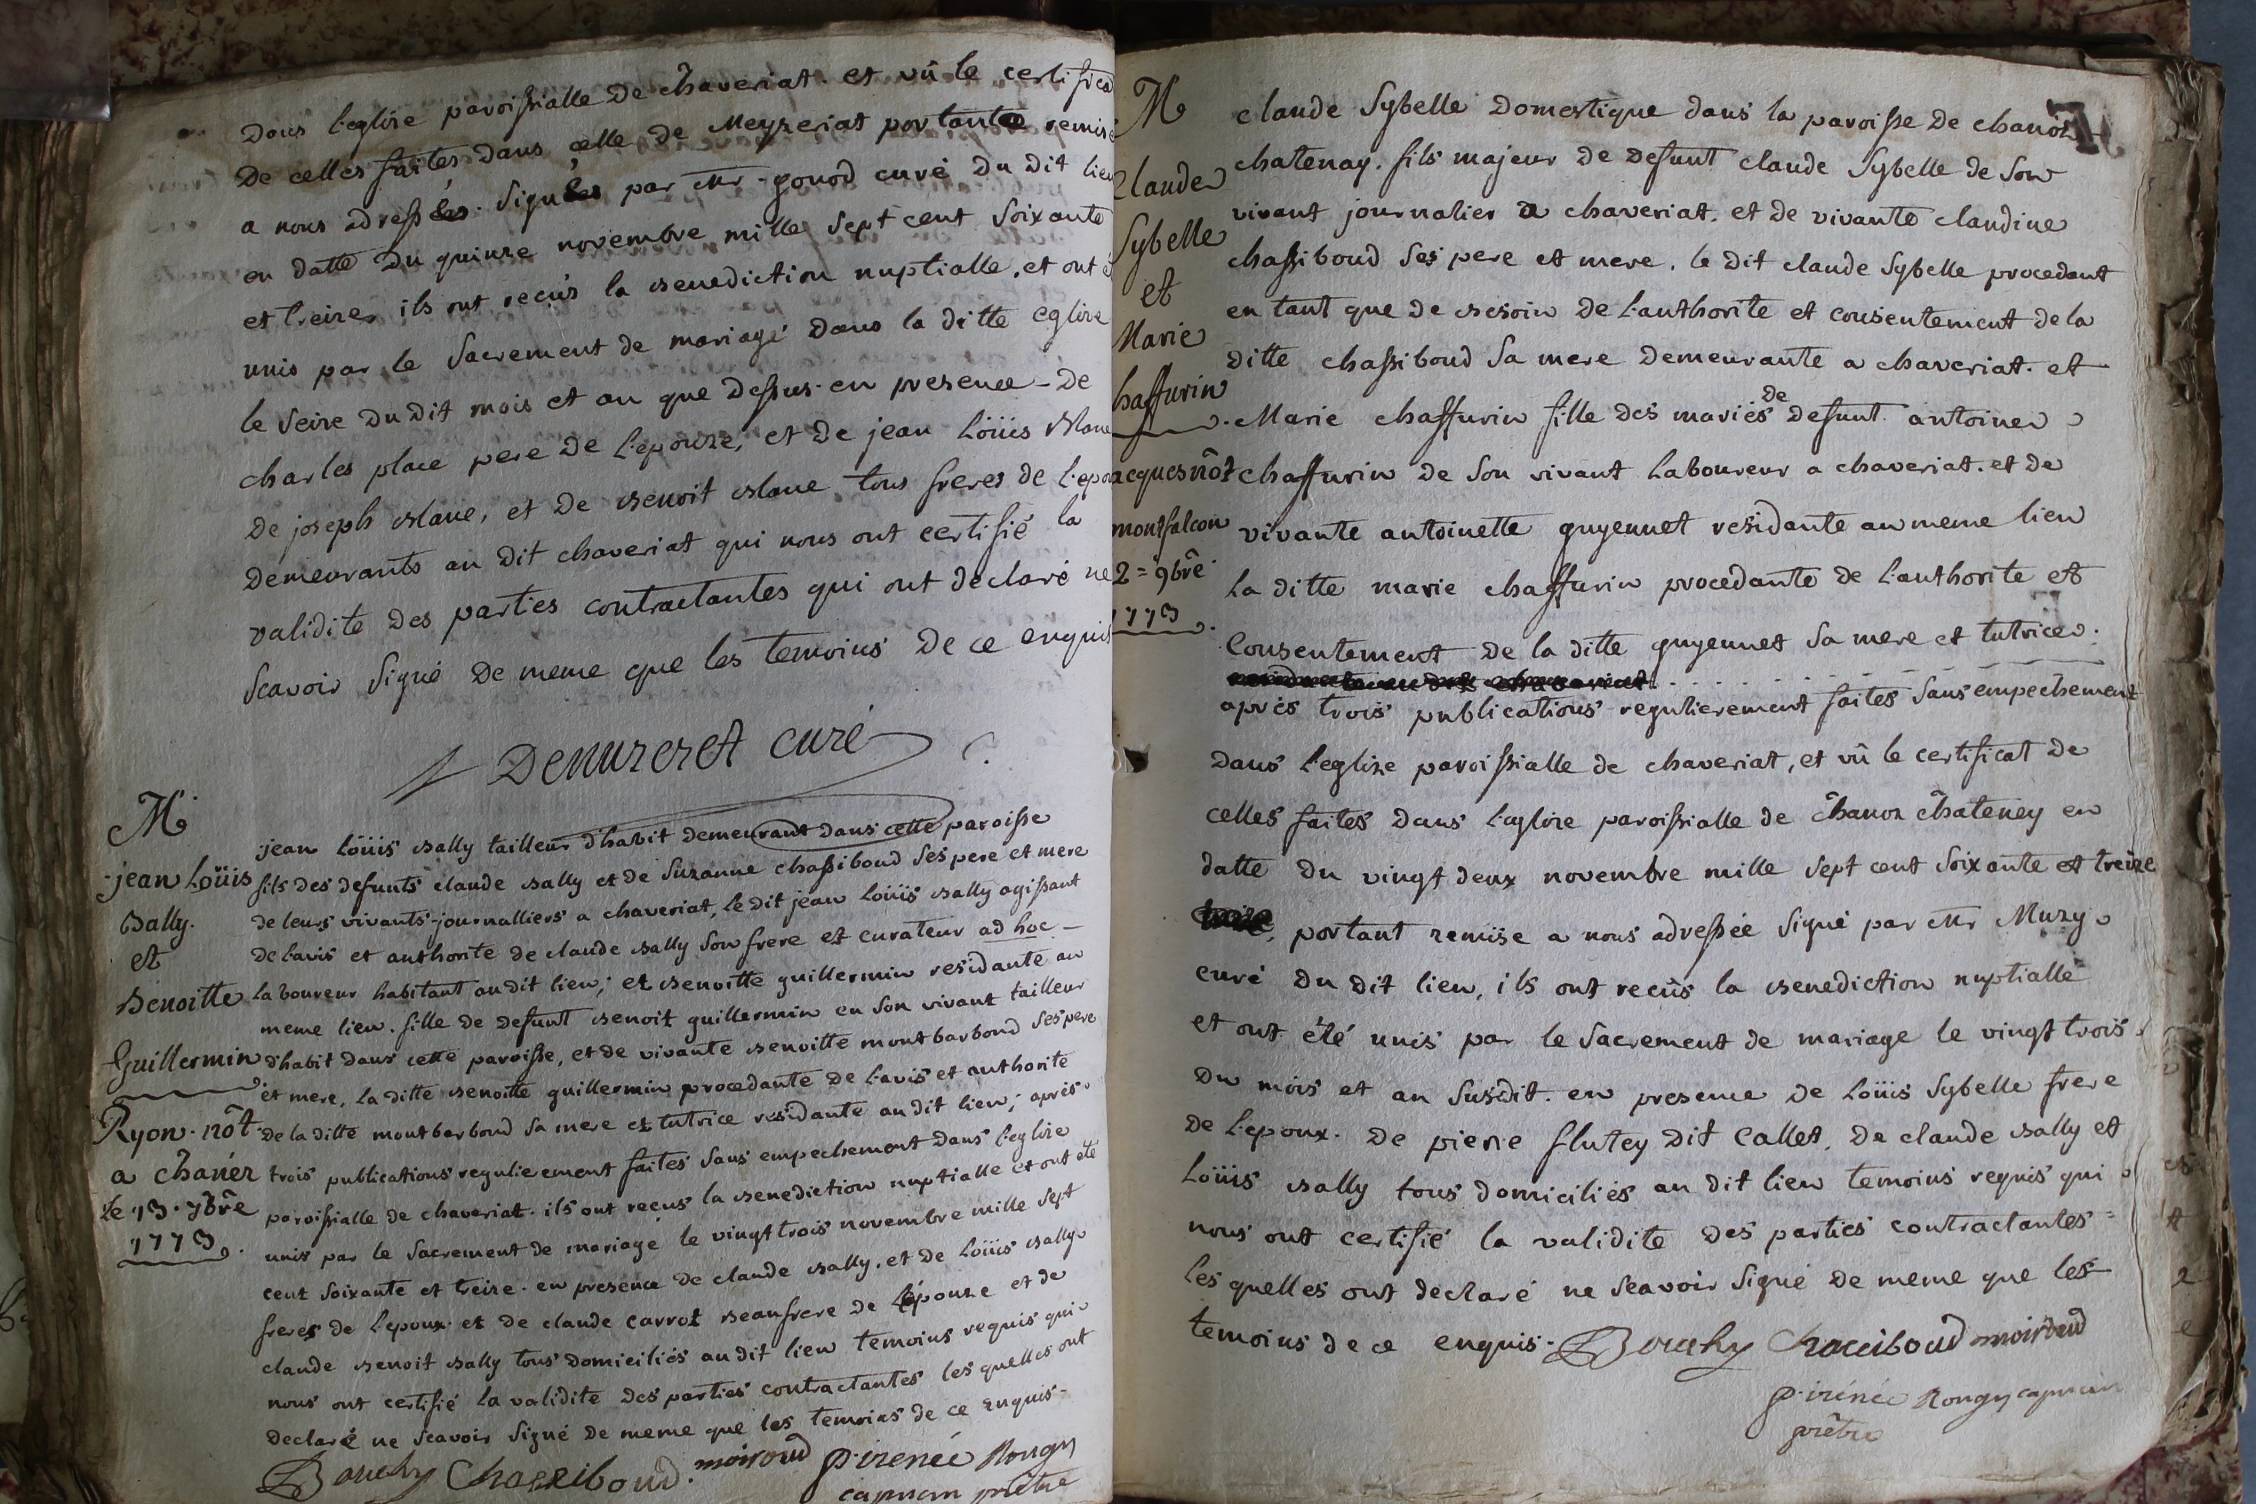 Dans l'eglise paroissialle De chaveriat. et vû le certifica
De celles faites dans celle de Meyzeriat portante remise
a nous adressées. signées par Mr gonod curé Du Dit lieu
en datte Du quinze novembre mille sept cent soixante
et treize, ils ont recûs la benediction nuptialle, et ont é
unis par le sacrement de mariage dans la ditte eglise
le seize Du Dit mois et an que Dessus. en presence De
charles place pere De l'epouze, et De jean Loüis Blanc
De joseph Blanc, et De Benoit Blanc tous freres de l'epou
Demeurants au Dit chaveriat qui nous ont certifié la
validite des parties contractantes qui ont déclaré ne
scavoir signé De meme que les temoins De ce enquis
Demureret curé
M
jean Loüis
Bally.
et
Benoitte
Guillermin
Ryon. nôt.
a chanéz
le 13. 7bre
1773.
jean Loüis Bally tailleur d'habit demeurant dans cette paroisse
fils des defunts claude Bally et de Suzanne chassiboud ses pere et mere
de leurs vivants journalliers a chaveriat, le dit jean Loüis Bally agissant
de l'avis et authorite de claude Bally son frere et curateur ad hoc
laboureur habitant audit lieu; et Benoitte guillermin residante au
meme lieu. fille de defunt Benoit guillermin en son vivant tailleur
d'habit dans cette paroisse, et de vivante Benoitte montbarbond ses pere
et mere, la ditte Benoitte guillermin procedante de l'avis et authorite
de la ditte montbarbond sa mere et tutrice residante audit lieu; aprés
trois publications regulierement faites sans empechement dans l'eglise
paroissialle de chaveriat. ils ont recus la benediction nuptialle et ont eté
unis par le sacrement de mariage le vingt trois novembre mille sept
cent soixante et treize. en presence de claude Bally. et de Loüis Bally
freres de l'epoux. et de claude carrot Beaufrere de l'épouze et de
claude Benoit Bally tous domiciliés audit lieu temoins requis qui
nous ont certifié la validite des parties contractantes les quelles ont
declaré ne scavoir signé de meme que les temoins de ce enquis
Bouchy Chassiboud. moiroud p. irenée Rougy
capucin prêtre
M
Claude
Sybelle
et
Marie
haffurin
acques nôt
montfalcon
2 = 9bre
1773.
claude Sybelle Domestique dans la paroisse De chanoz
chatenay. fils majeur de defunt claude Sybelle de son
vivant journalier a chaveriat. et de vivante claudine
chassiboud ses pere et mere. le dit claude Sybelle procedant
en tant que de besoin de l'authorite et consentement de la
ditte chassiboud sa mere demeurante a chaveriat. et
Marie chaffurin fille des mariés de defunt antoine
chaffurin de son vivant laboureur a chaveriat. et de
vivante antoinette guyennet residante au meme lieu
la ditte marie chaffurin procedante de l'authorite et
consentement de la ditte guyennet sa mere et tutrice.
aprés trois publications regulierement faites sans empechement
dans l'eglize paroissialle de chaveriat, et vû le certificat de
celles faites dans l'eglise paroissialle de chanoz châteney en
datte du vingt deux novembre mille sept cent soixante et treize
portant remise a nous adressée signé par Mr Muzy
curé du dit lieu, ils ont recûs la benediction nuptialle
et ont été unis par le sacrement de mariage le vingt trois
du mois et an susdit. en presence de Loüis Sybelle frere
de l'epoux. De pierre flutey dit Callet, de claude Bally et
Loüis Bally tous domiciliés au dit lieu temoins requis qui
nous ont certifié la validite des parties contractantes
les quelles ont declaré ne scavoir signé de meme que les
temoins de ce enquis. Bouchy Chassiboud moiroud
p. irénée Rougy capucin
prêtre